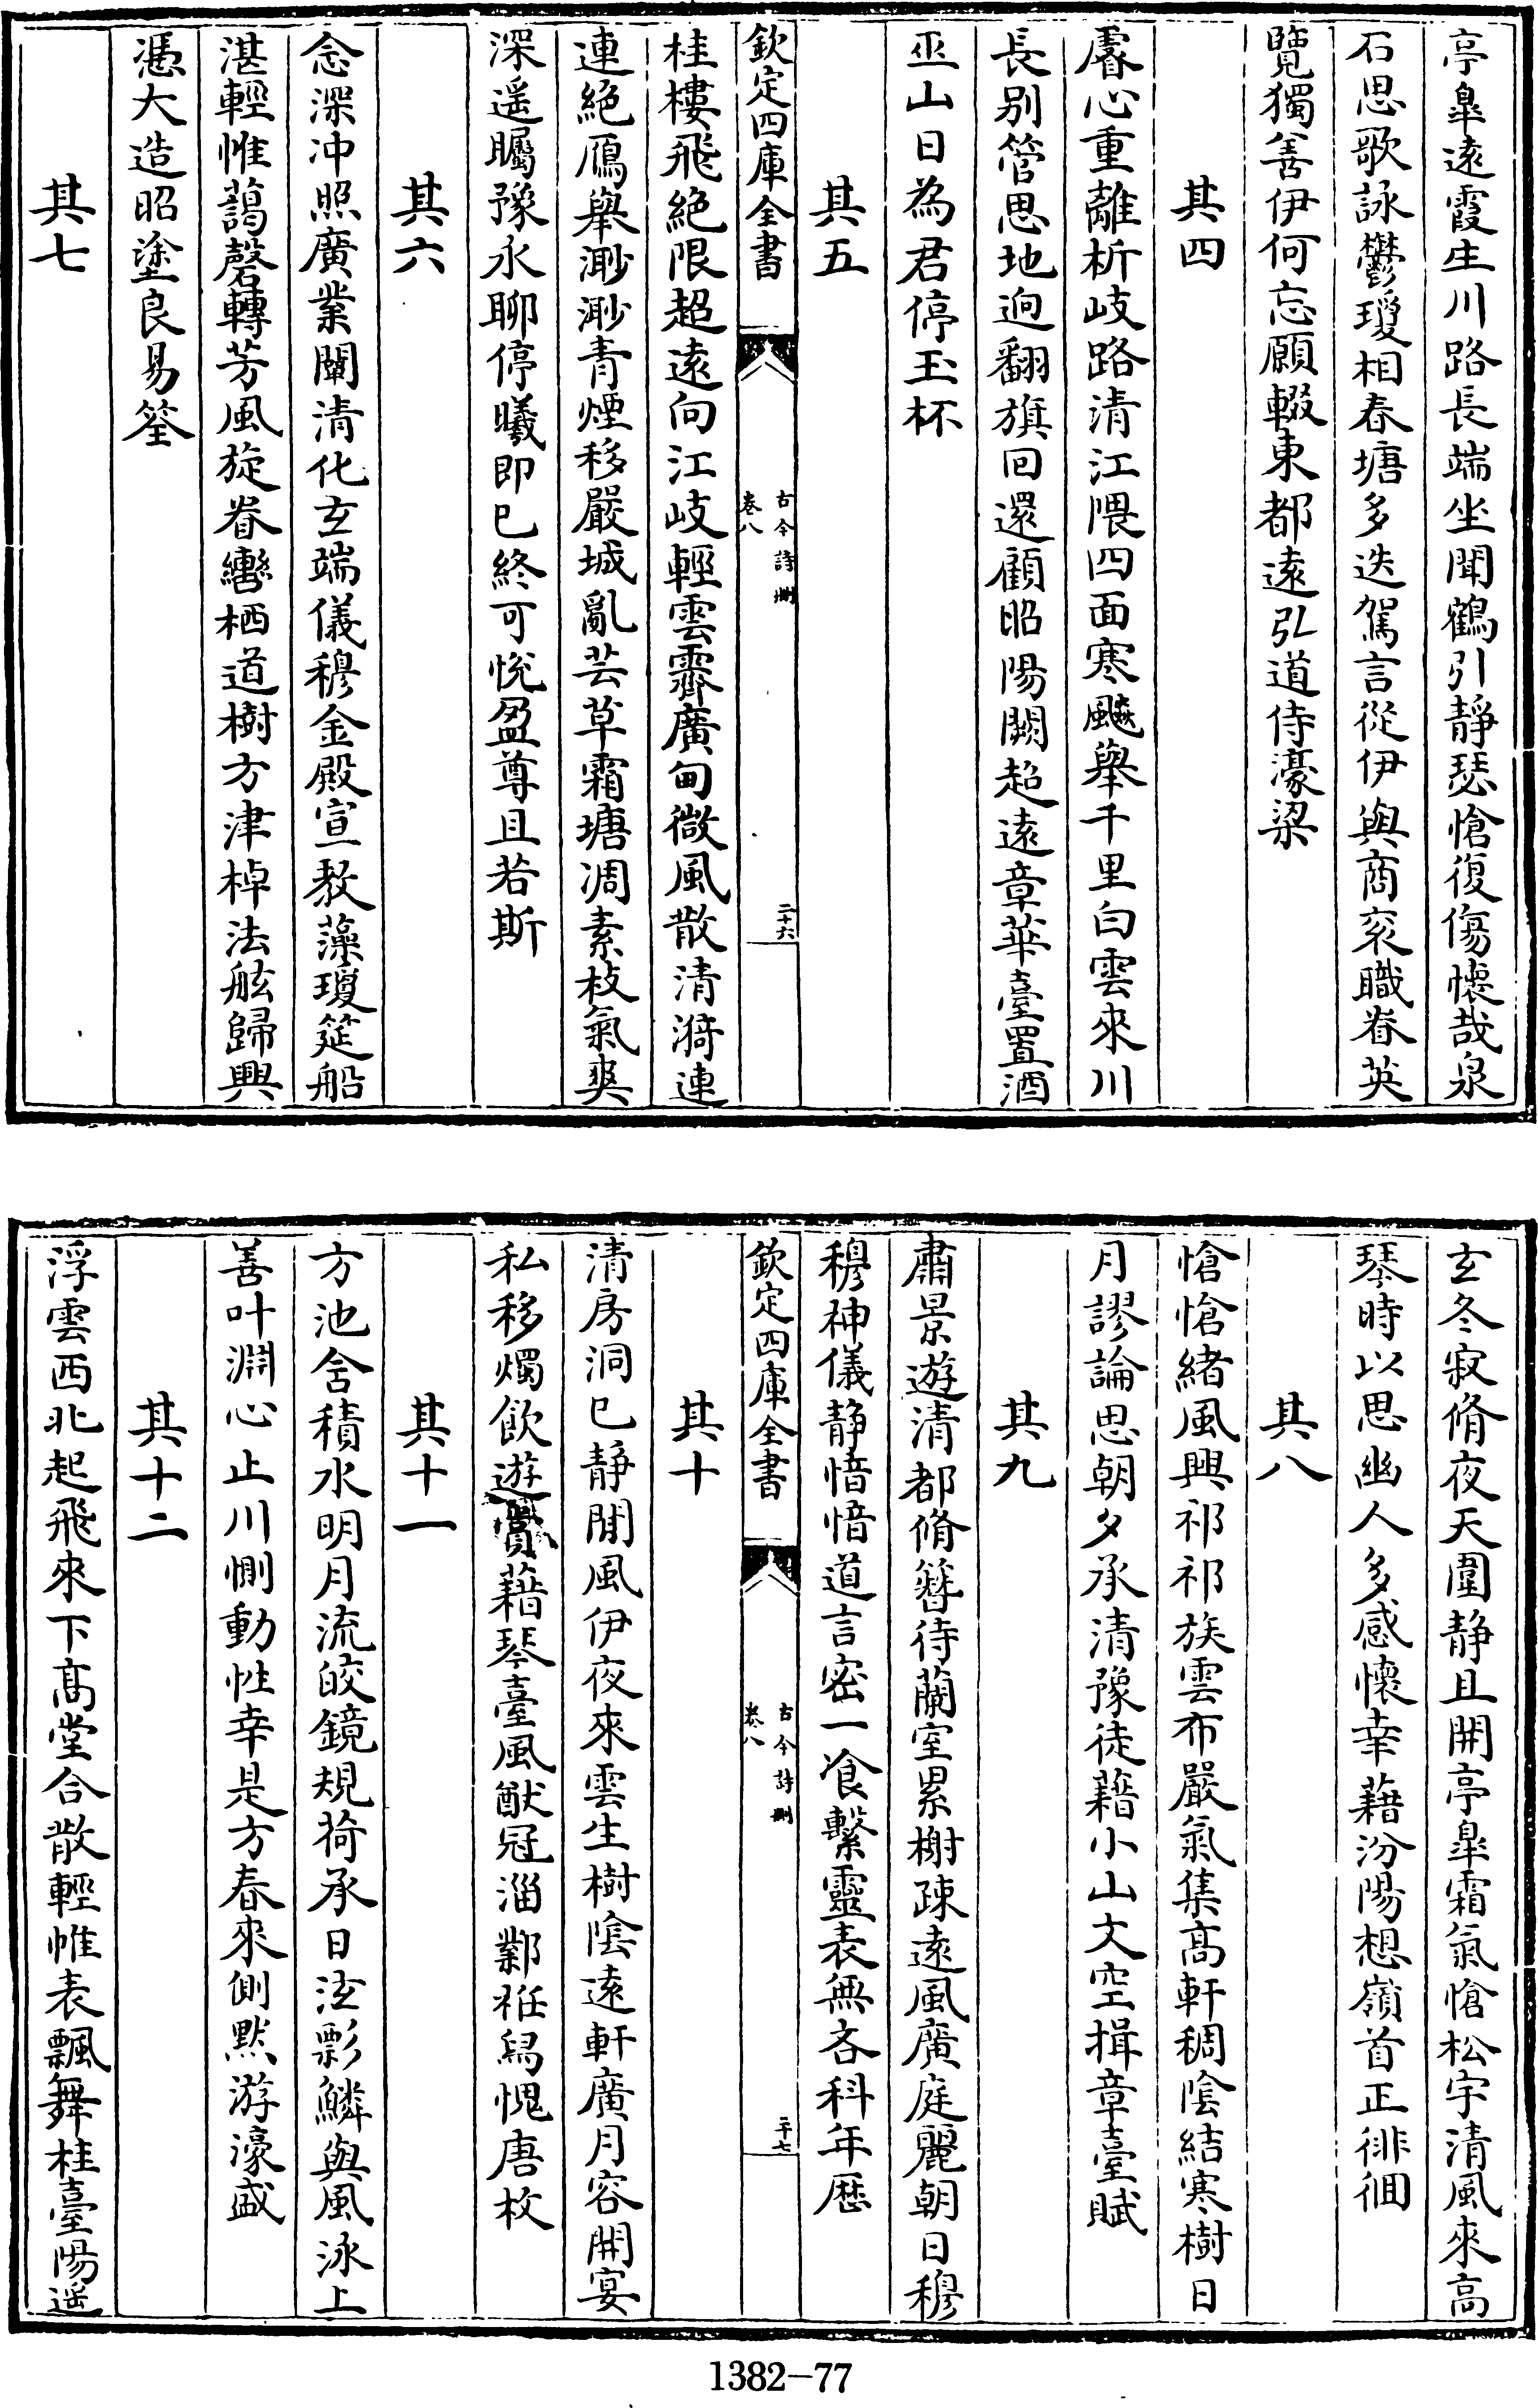 亭臯遠霞生川路長端坐聞鶴引靜瑟愴復傷懷哉泉
石思歌詠鬱瓊相春塘多迭駕言從伊與商衮職眷英
覽獨善伊何忘願輟東都遠弘道侍濠梁
其四
睿心重離析岐路清江隈四面寒飈舉千里白雲來川
長别管思地逈翻旗回還顧昭陽闕超遠章華臺置酒
巫山日為君停玉杯
其五
欽定四庫全書
古今詩刪
卷八
二十六
桂樓飛絶限超遠向江岐輕雲霽廣甸微風散清漪連
連絶鴈舉渺渺青煙移嚴城亂芸草霜塘凋素枝氣爽
深遥矚豫永聊停曦即巳終可悅盈尊且若斯
其六
念深冲照廣業闡清化玄端儀穆金殿宣敎藻瓊筵船
湛輕惟藹磬轉芳風旋眷轡栖道樹方津棹法舷歸興
憑大造昭塗良易筌
其七
玄冬寂脩夜天圍静且開亭臯霜氣愴松宇清風來高
琴時以思幽人多感懷幸藉汾陽想嶺首正徘徊
其八
愴愴緒風興祁祁族雲布嚴氣集高軒稠陰結寒樹日
月謬論思朝夕承清豫徒藉小山文空揖章臺賦
其九
肅景遊清都脩簪待蘭室累榭疎遠風廣庭麗朝日穆
穆神儀静愔愔道言密一飡繫靈表無吝科年厯
欽定四庫全書
古今詩刪
卷八
二十七
其十
清房洞巳静閒風伊夜來雲生樹陰遠軒廣月容開宴
私移燭飲遊賞藉琴臺風猷冠淄鄴袵舄愧唐枚
其十一
方池含積水明月流皎鏡規荷承日泫影鱗與風泳上
善叶淵心止川惻動性幸是方春來側點游濠盛
其十二
浮雲西北起飛來下高堂合散輕帷表飄舞桂臺陽遥
1382-77